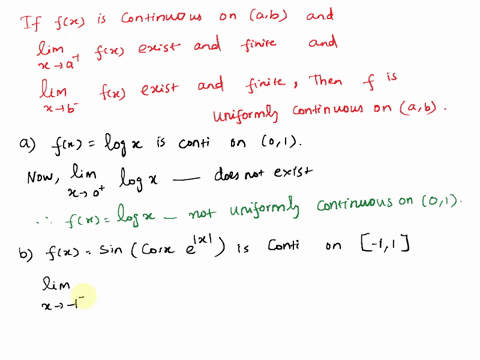 If f(x) is continuous on (a,b) and
lim x→a⁺ f(x) exist and finite and
lim x→b⁻ f(x) exist and finite, Then f is
uniformly continuous on (a,b).
a) f(x) = log x is conti on (0,1).
Now, lim x→0⁺ log x — does not exist
∴ f(x) = log x — not uniformly continuous on (0,1).
b) f(x) = sin (cosx e^|x|) is conti on [-1,1]
lim x→-1⁻